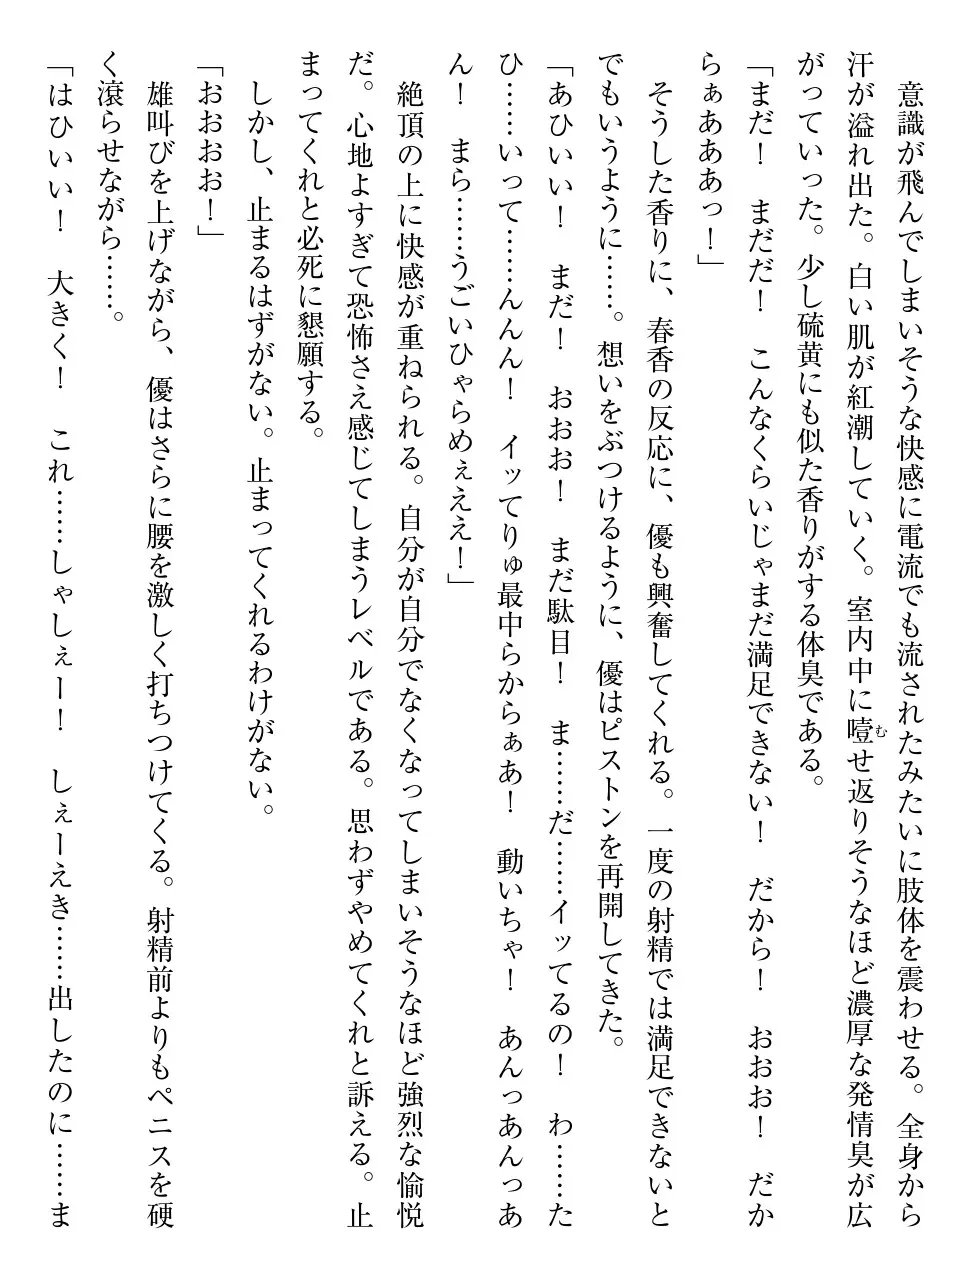 意識が飛んでしまいそうな快感に電流でも流されたみたいに肢体を震わせる。全身から
汗が溢れ出た。白い肌が紅潮していく。室内中に噎せ返りそうなほど濃厚な発情臭が広
がっていった。少し硫黄にも似た香りがする体臭である。
「まだ！　まだだ！　こんなくらいじゃまだ満足できない！　だから！　おおお！　だか
らぁあああっ！」
　そうした香りに、春香の反応に、優も興奮してくれる。一度の射精では満足できないと
でもいうように……。想いをぶつけるように、優はピストンを再開してきた。
「あひいい！　まだ！　おおお！　まだ駄目！　ま……だ……イッてるの！　わ……た
ひ……いって……んんん！　イッてりゅ最中らからぁあ！　動いちゃ！　あんっあんっあ
ん！　まら……うごいひゃらめぇええ！」
　絶頂の上に快感が重ねられる。自分が自分でなくなってしまいそうなほど強烈な愉悦
だ。心地よすぎて恐怖さえ感じてしまうレベルである。思わずやめてくれと訴える。止
まってくれと必死に懇願する。
　しかし、止まるはずがない。止まってくれるわけがない。
「おおおお！」
　雄叫びを上げながら、優はさらに腰を激しく打ちつけてくる。射精前よりもペニスを硬
く滾らせながら……。
「はひいい！　大きく！　これ……しゃしぇー！　しぇーえき……出したのに……ま